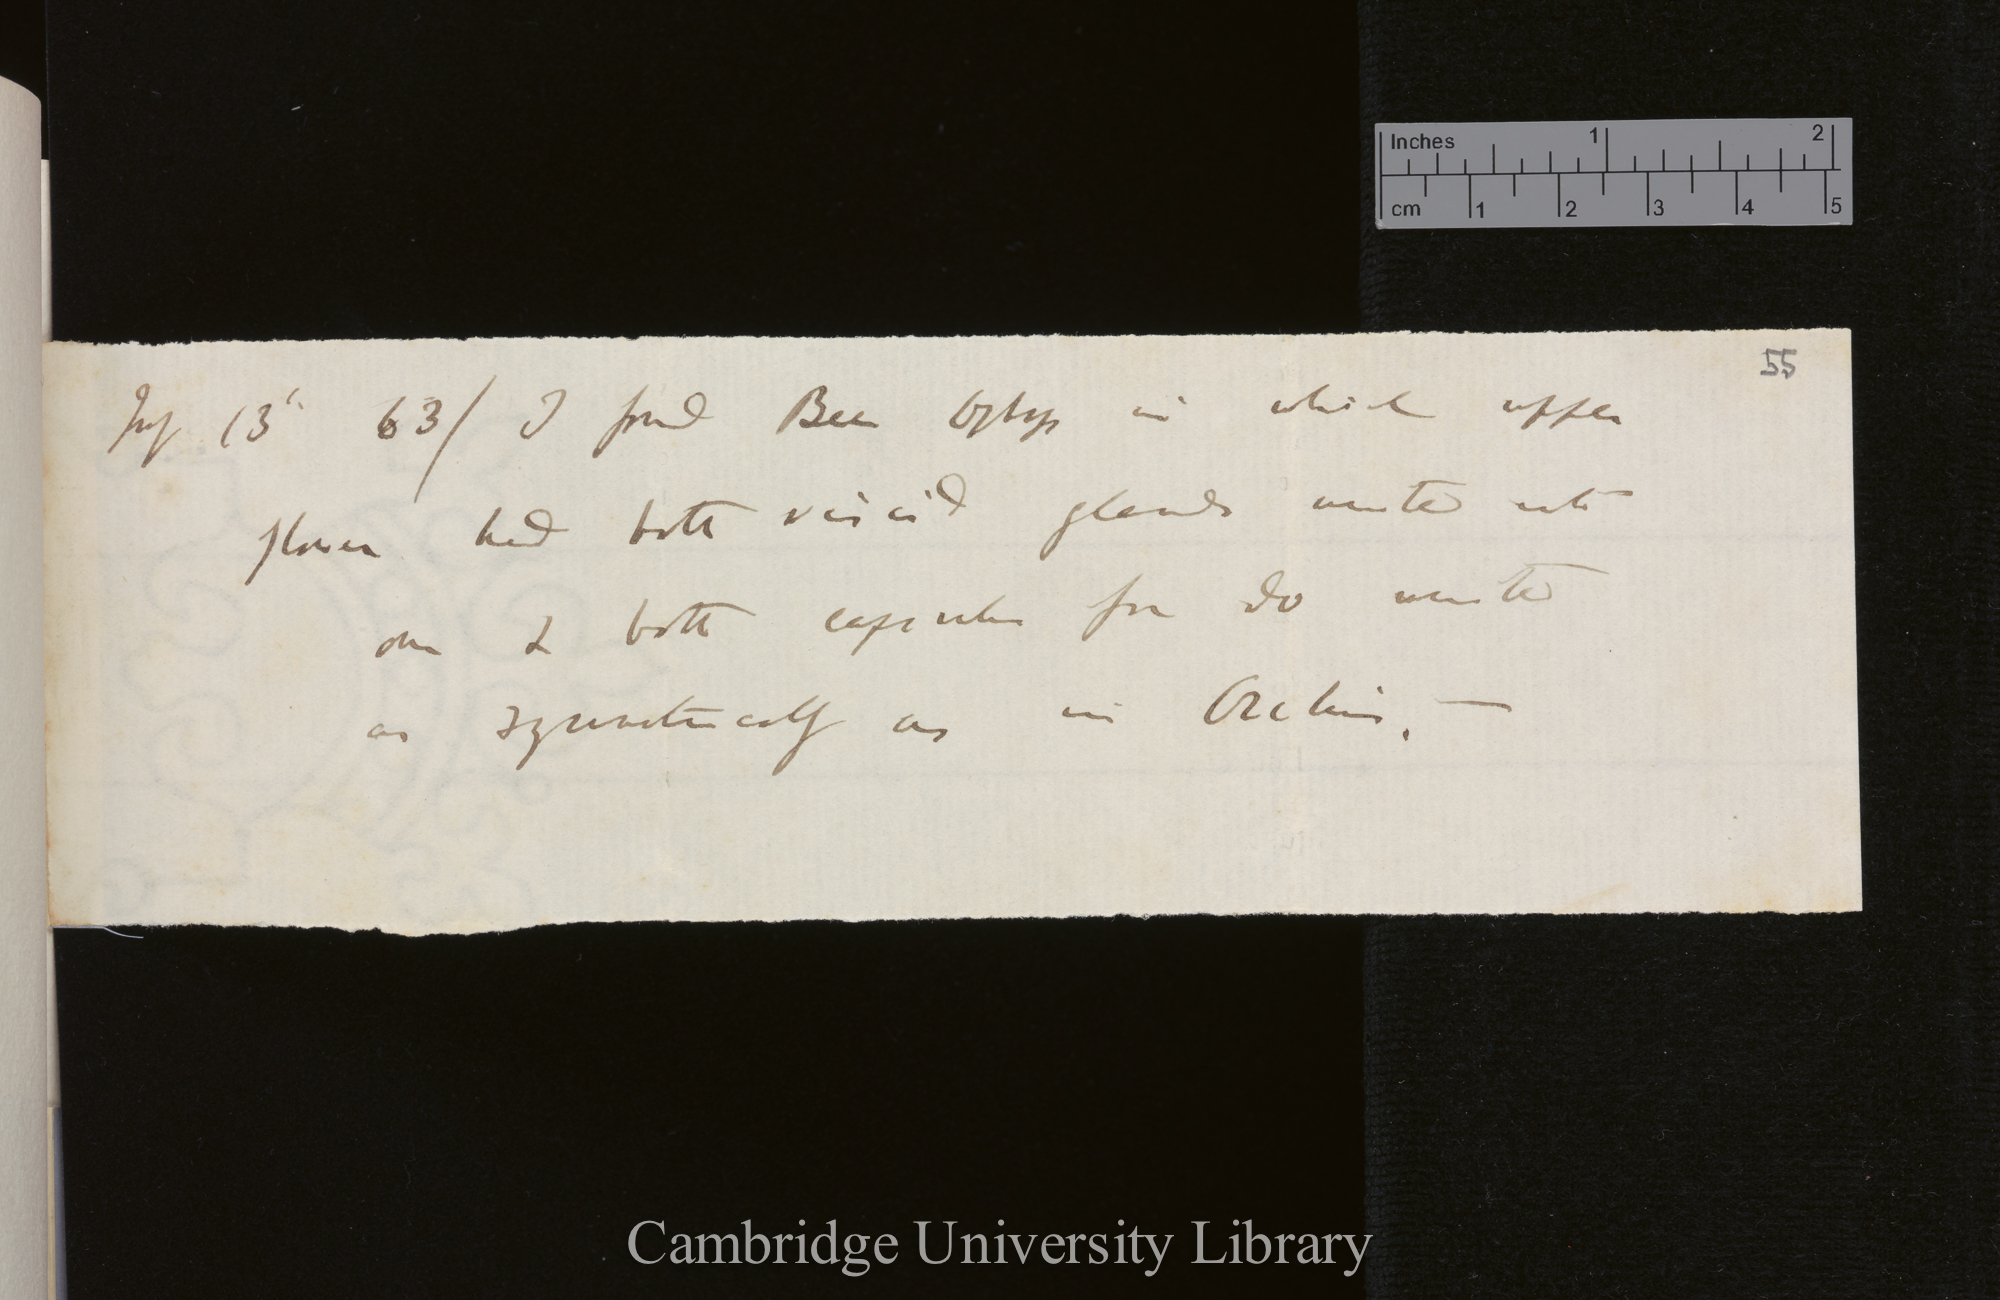 Inches 1 2
cm 1 2 3 4 5
55
July 13th 63/ I found Bee Ophrys in which upper
flower had both viscid glands united into
one & both capsules fr do united
as symmetrically as in Orchis. —
Cambridge University Library